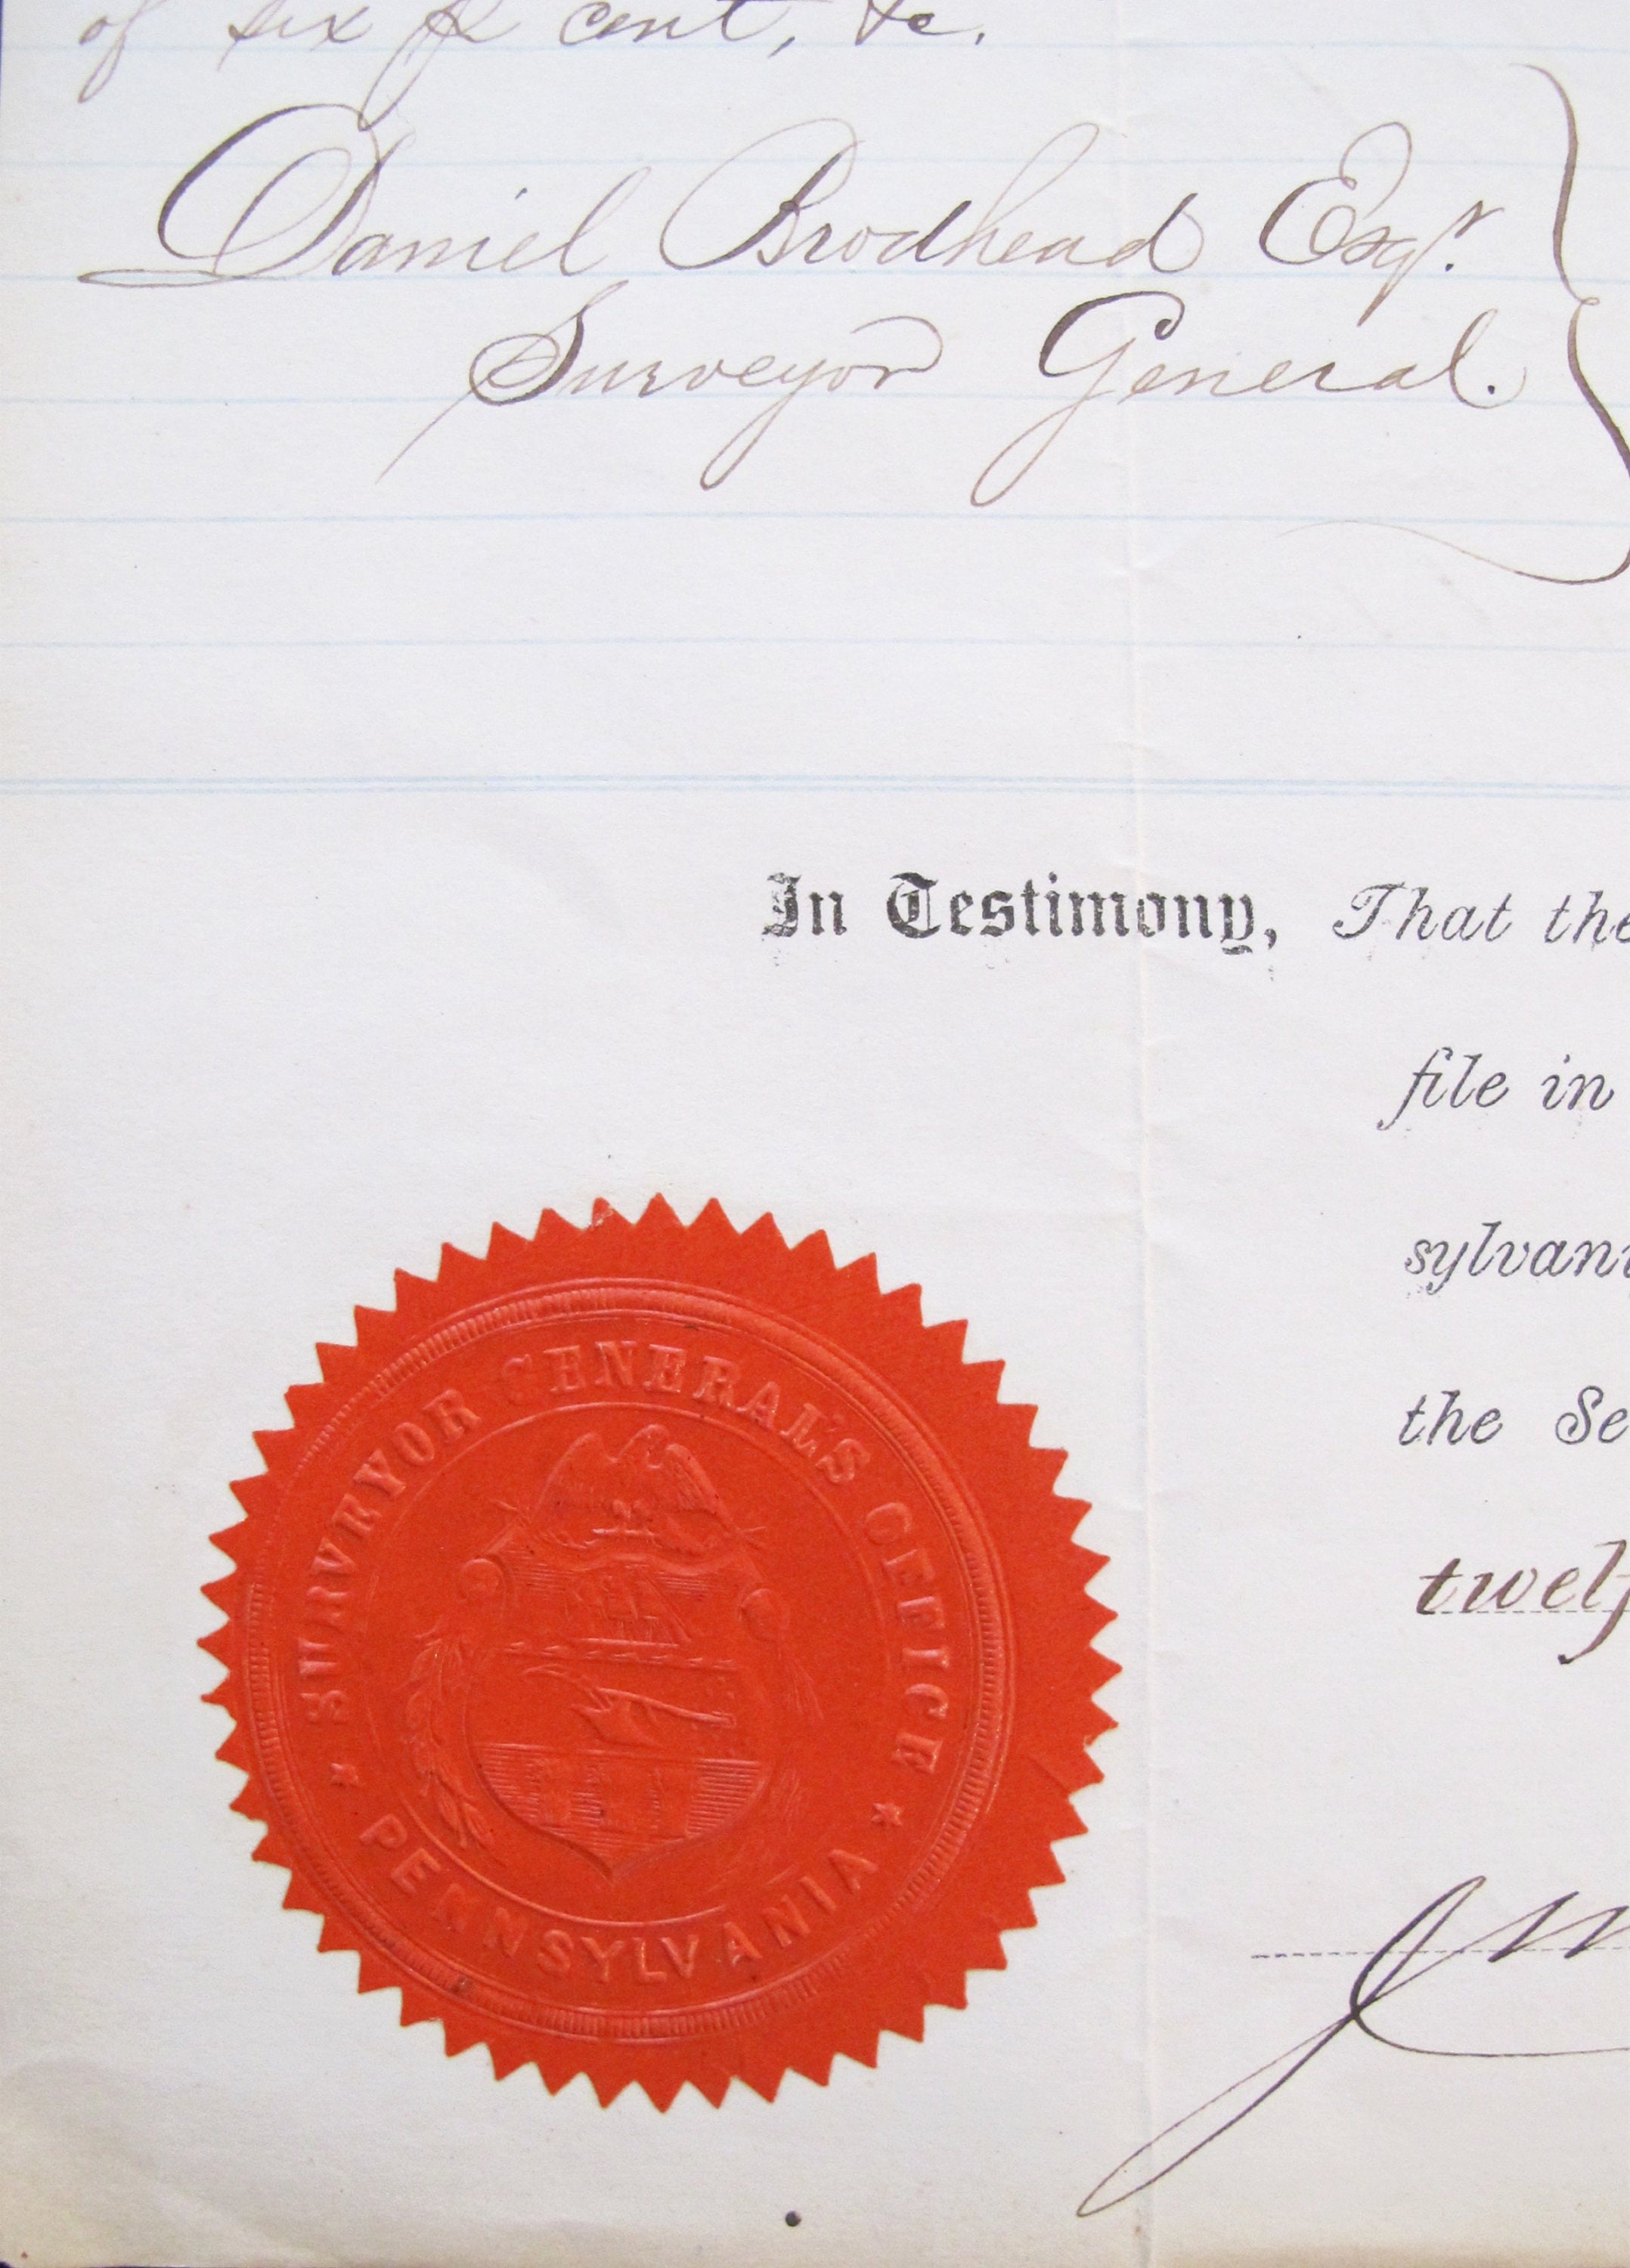 of six p cent, &c.
Daniel Brodhead Esqr.
Surveyor General.
In Testimony, That the
file in
sylvani
the Se
twelf
SURVEYOR GENERAL'S OFFICE
PENNSYLVANIA